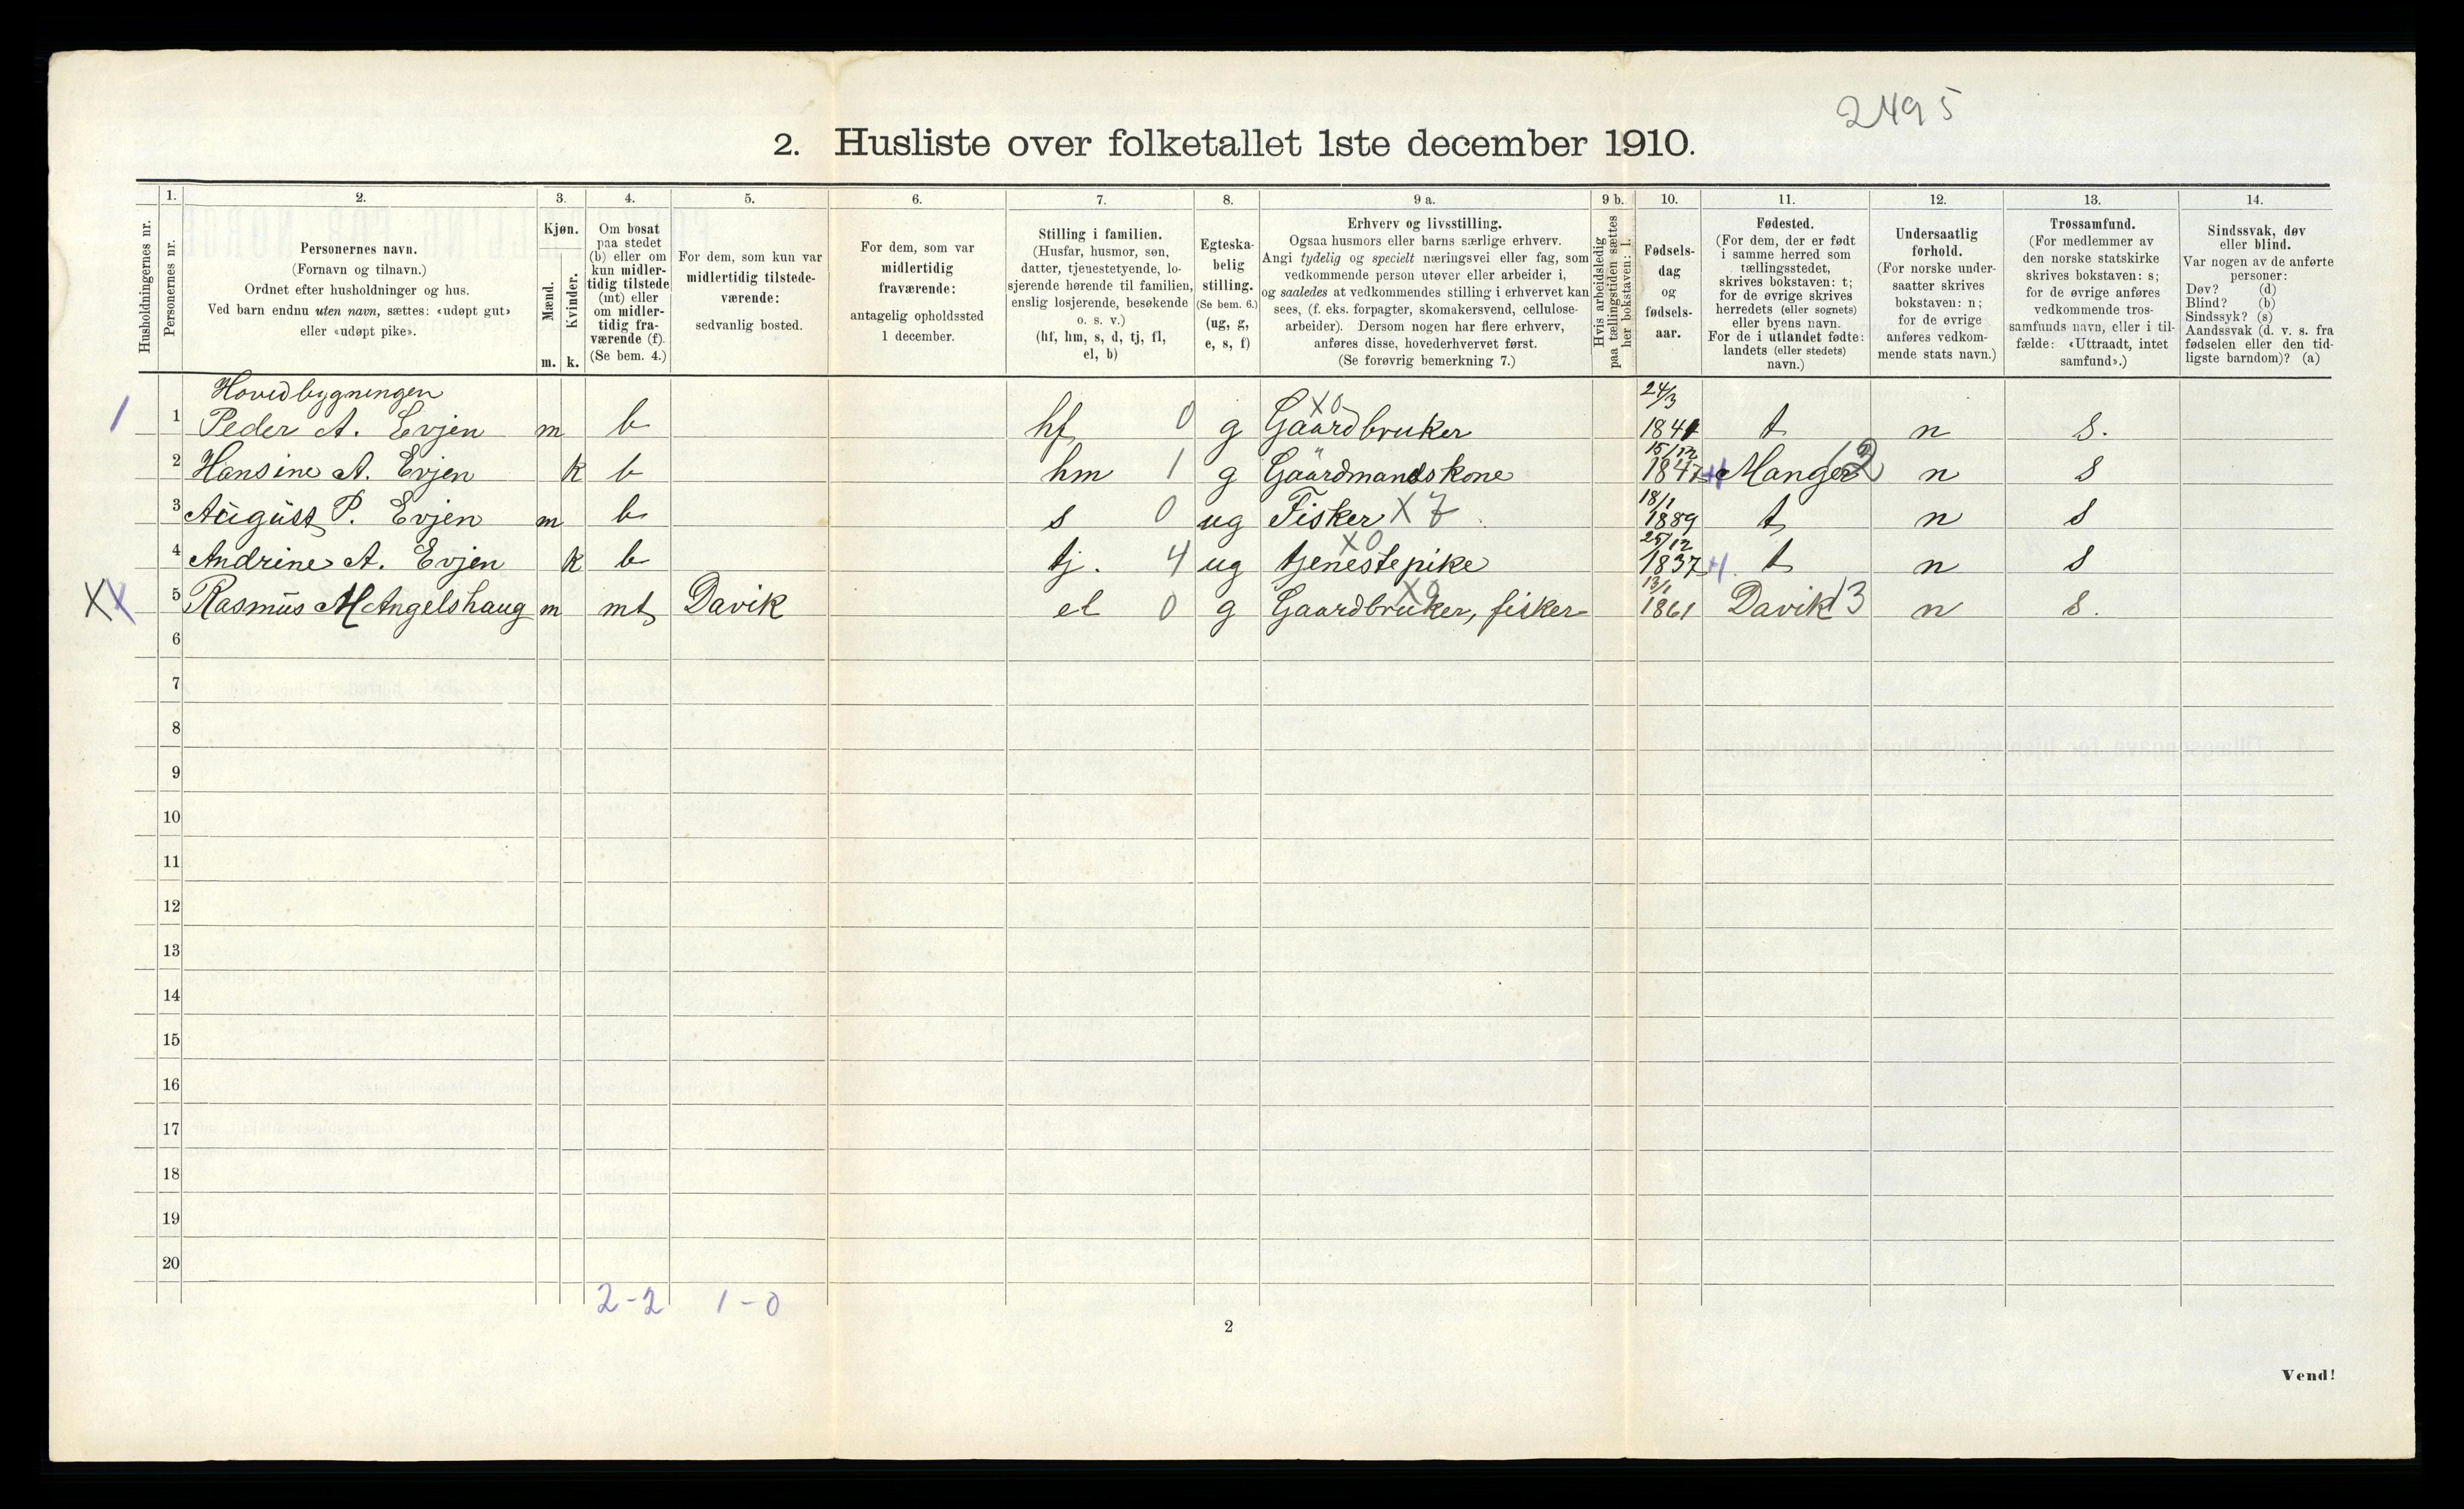 2495
2. Husliste over folketallet 1ste december 1910.
Husholdningernes nr.
1.
Personernes nr.
2.
Personernes navn.
(Fornavn og tilnavn.)
Ordnet efter husholdninger og hus.
Ved barn endnu uten navn, sættes: «udøpt gut»
eller «udøpt pike».
3.
Kjøn.
Mænd.
Kvinder.
m. k.
4.
Om bosat
paa stedet
(b) eller om
kun midler-
tidig tilstede
(mt) eller
om midler-
tidig fra-
værende (f).
(Se bem. 4.)
5.
For dem, som kun var
midlertidig tilstede-
værende:
sedvanlig bosted.
6.
For dem, som var
midlertidig
fraværende:
antagelig opholdssted
1 december.
7.
Stilling i familien.
(Husfar, husmor, søn,
datter, tjenestetyende, lo-
sjerende hørende til familien,
enslig losjerende, besøkende
o. s. v.)
(hf, hm, s, d, tj, fl,
el, b)
8.
Egteska-
belig
stilling.
(Se bem. 6.)
(ug, g,
e, s, f)
9 a.
Erhverv og livsstilling.
Ogsaa husmors eller barns særlige erhverv.
Angi tydelig og specielt næringsvei eller fag, som
vedkommende person utøver eller arbeider i,
og saaledes at vedkommendes stilling i erhvervet kan
sees, (f. eks. forpagter, skomakersvend, cellulose-
arbeider). Dersom nogen har flere erhverv,
anføres disse, hovederhvervet først.
(Se forøvrig bemerkning 7.)
9 b.
Hvis arbeidsledig
paa tællingstiden sættes
her bokstaven: l.
10.
Fødsels-
dag
og
fødsels-
aar.
11.
Fødested.
(For dem, der er født
i samme herred som
tællingsstedet,
skrives bokstaven: t;
for de øvrige skrives
herredets (eller sognets)
eller byens navn.
For de i utlandet fødte:
landets (eller stedets)
navn.)
12.
Undersaatlig
forhold.
(For norske under-
saatter skrives
bokstaven: n;
for de øvrige
anføres vedkom-
mende stats navn.)
13.
Trossamfund.
(For medlemmer av
den norske statskirke
skrives bokstaven: s;
for de øvrige anføres
vedkommende tros-
samfunds navn, eller i til-
fælde: «Uttraadt, intet
samfund».)
14.
Sindssvak, døv
eller blind.
Var nogen av de anførte
personer:
Døv? (d)
Blind? (b)
Sindssyk? (s)
Aandssvak (d. v. s. fra
fødselen eller den tid-
ligste barndom)? (a)
Hovedbygningen
1 1 Peder A. Evjen m b hf 0 g Gaardbruker X0 24/3 1841 t n s.
2 Hansine A. Evjen k b hm 1 g Gaardmandskone " 15/12 1847 Manger 12 n s
3 August P. Evjen m b s 0 ug Fisker X 7 18/1 1889 t n s
4 Andrine A. Evjen k b tj. 4 ug tjenestepike X0 25/12 1837 t n s
XX 5 Rasmus M Angelshaug m mt Davik el 0 g Gaardbruker, fisker X0 13/1 1861 Davik 13 n s.
6
7
8
9
10
11
12
13
14
15
16
17
18
19
20
2-2 1-0
2
Vend!